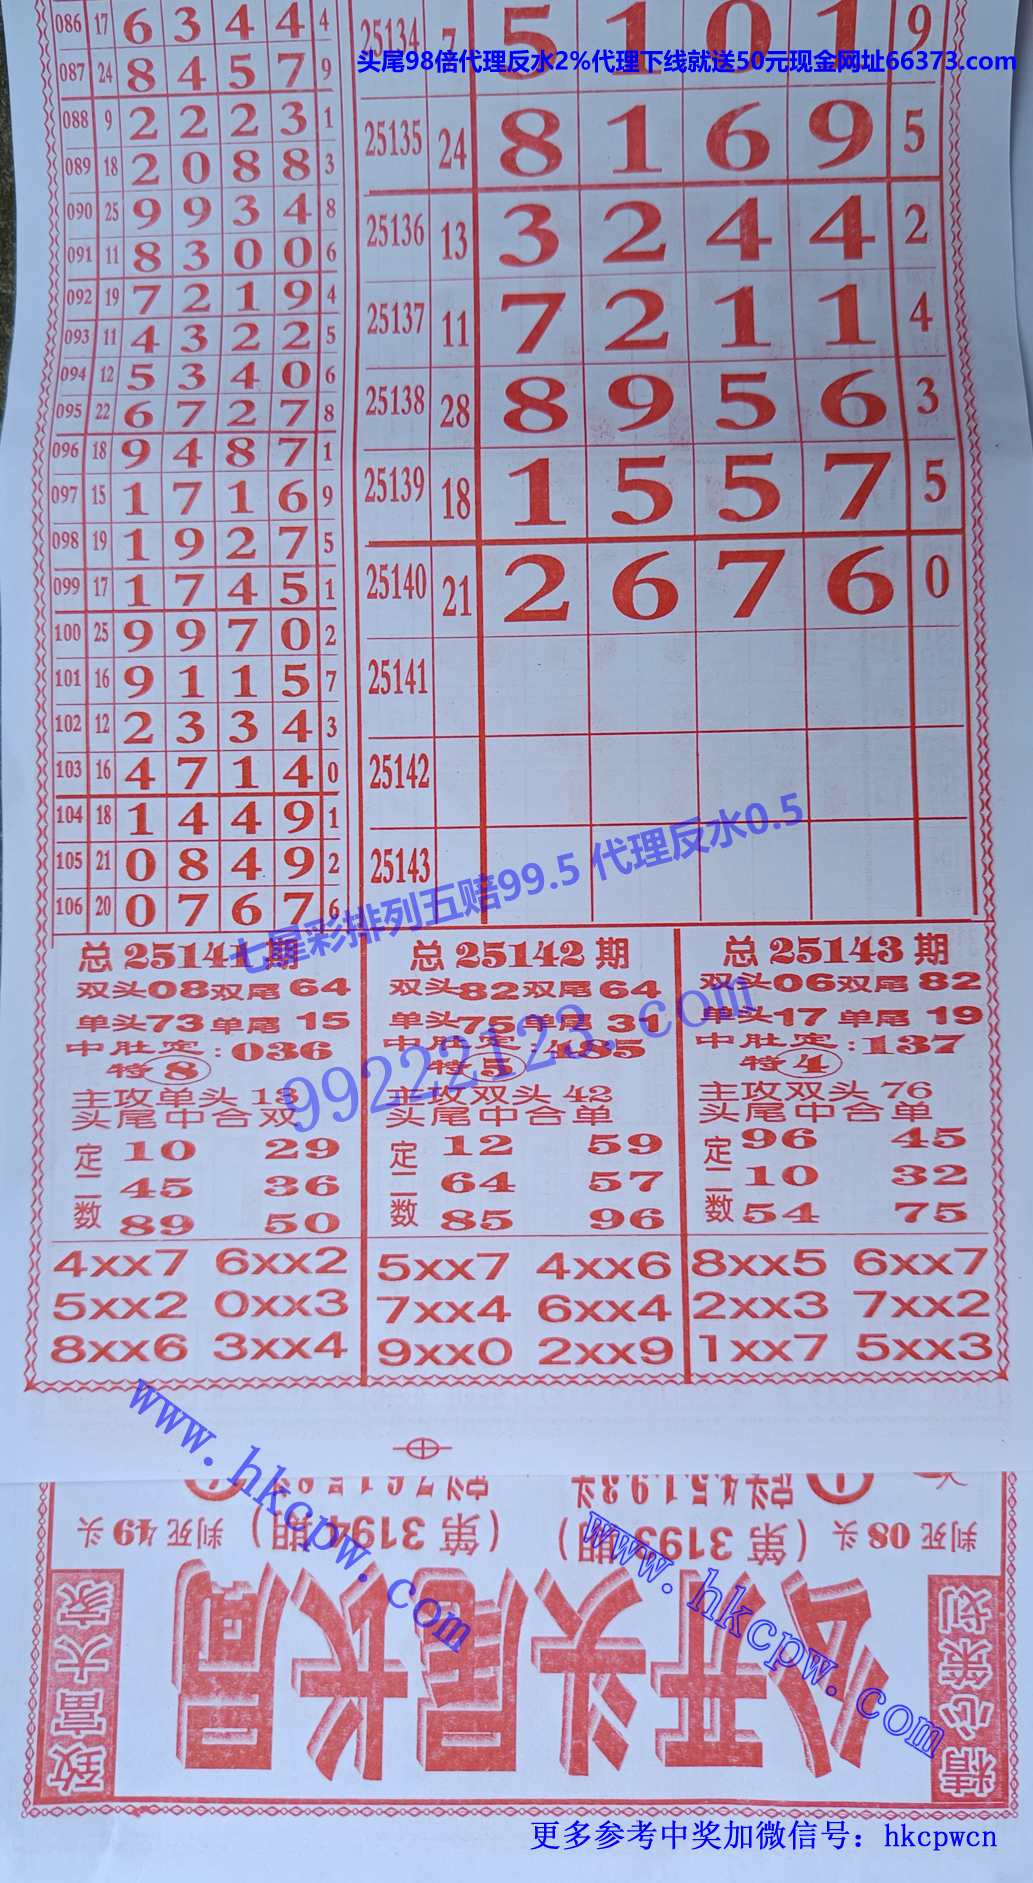 086 17 6 3 4 4 4
087 24 8 4 5 7 9
088 9 2 2 2 3 1
089 18 2 0 8 8 3
090 25 9 9 3 4 8
091 11 8 3 0 0 6
092 19 7 2 1 9 4
093 11 4 3 2 2 5
094 12 5 3 4 0 6
095 22 6 7 2 7 8
096 18 9 4 8 7 1
097 15 1 7 1 6 9
098 19 1 9 2 7 5
099 17 1 7 4 5 1
100 25 9 9 7 0 2
101 16 9 1 1 5 7
102 12 2 3 3 4 3
103 16 4 7 1 4 0
104 18 1 4 4 9 1
105 21 0 8 4 9 2
106 20 0 7 6 7 6
25134 7 5 1 0 1 9
头尾98倍代理反水2%代理下线就送50元现金网址66373.com
25135 24 8 1 6 9 5
25136 13 3 2 4 4 2
25137 11 7 2 1 1 4
25138 28 8 9 5 6 3
25139 18 1 5 5 7 5
25140 21 2 6 7 6 0
25141
25142
25143
七星彩排列五赔99.5 代理反水0.5
99222123.com
总25141期
双头08双尾64
单头73单尾15
中肚定:036
特8
主攻单头13
头尾中合双
定二数
10 29
45 36
89 50
4xx7 6xx2
5xx2 0xx3
8xx6 3xx4
总25142期
双头82双尾64
单头75单尾31
中肚定:485
特5
主攻双头42
头尾中合单
定二数
12 59
64 57
85 96
5xx7 4xx6
7xx4 6xx4
9xx0 2xx9
总25143期
双头06双尾82
单头17单尾19
中肚定:137
特4
主攻双头76
头尾中合单
定二数
96 45
10 32
54 75
8xx5 6xx7
2xx3 7xx2
1xx7 5xx3
www.hkcpw.com
www.hkcpw.com
精心策划
公开头尾长局
致富大家
判死08头
(第3193期)
(第3194期)
判死49头
更多参考中奖加微信号：hkcpwcn